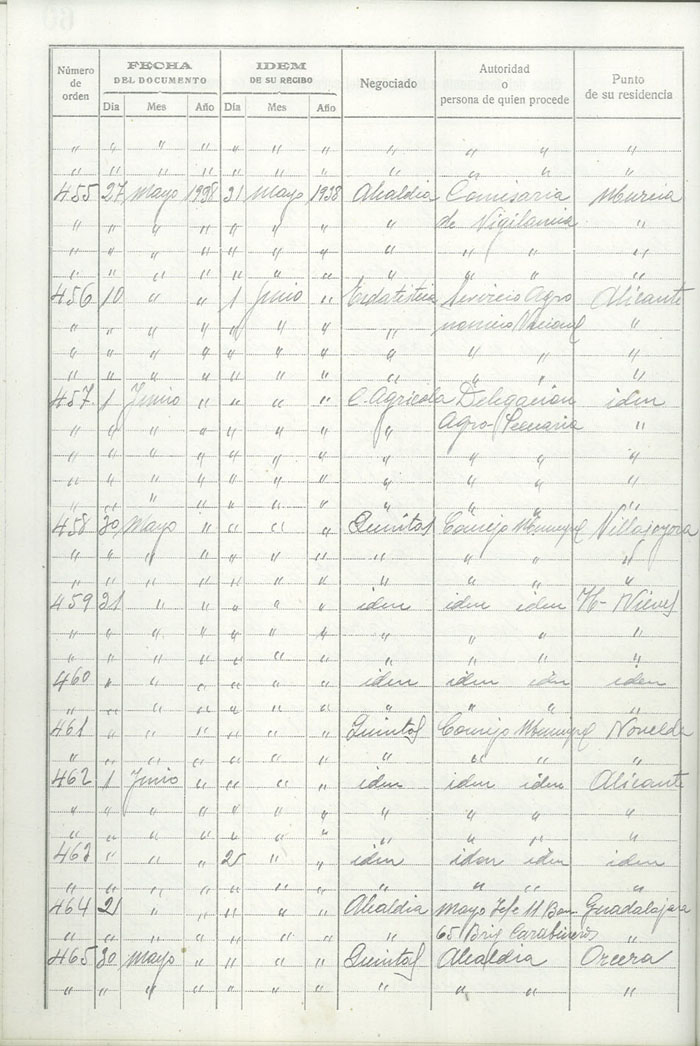 Número de orden | FECHA DEL DOCUMENTO | IDEM DE SU RECIBO | Negociado | Autoridad o persona de quien procede | Punto de su residencia
Dia | Mes | Año | Dia | Mes | Año
" " " " " " " " " " "
" " " " " " " " " " "
455 27 Mayo 1938 31 Mayo 1938 Alcaldia Comisaria Murcia
" " " " " " " " de Vigilancia "
" " " " " " " " " " "
" " " " " " " " " " "
456 10 " " 1 Junio " Estadistica Servicio Agro Alicante
" " " " " " " " nomico Nacional "
" " " " " " " " " " "
" " " " " " " " " " "
457 1 Junio " " " " C. Agricola Delegacion idem
" " " " " " " " Agro-Pecuaria "
" " " " " " " " " " "
" " " " " " " " " " "
" " " " " " " " " " "
458 30 Mayo " " " " Quintas Consejo Municipal Villajoyosa
" " " " " " " " " " "
" " " " " " " " " " "
459 31 " " " " " idem idem idem H- Nieves
" " " " " " " " " " "
" " " " " " " " " " "
460 " " " " " " idem idem idem idem
" " " " " " " " " " "
461 " " " " " " Quintas Consejo Municipal Novelda
" " " " " " " " " " "
462 1 Junio " " " " idem idem idem Alicante
" " " " " " " " " " "
" " " " " " " " " " "
463 " " " 2 " " idem idem idem idem
" " " " " " " " " " "
464 2 " " " " " Alcaldia Mayo Jefe 11 Bon Guadalajara
" " " " " " " " 65 Brig Carabineros "
465 30 Mayo " " " " Quintas Alcaldia Orcera
" " " " " " " " " " "